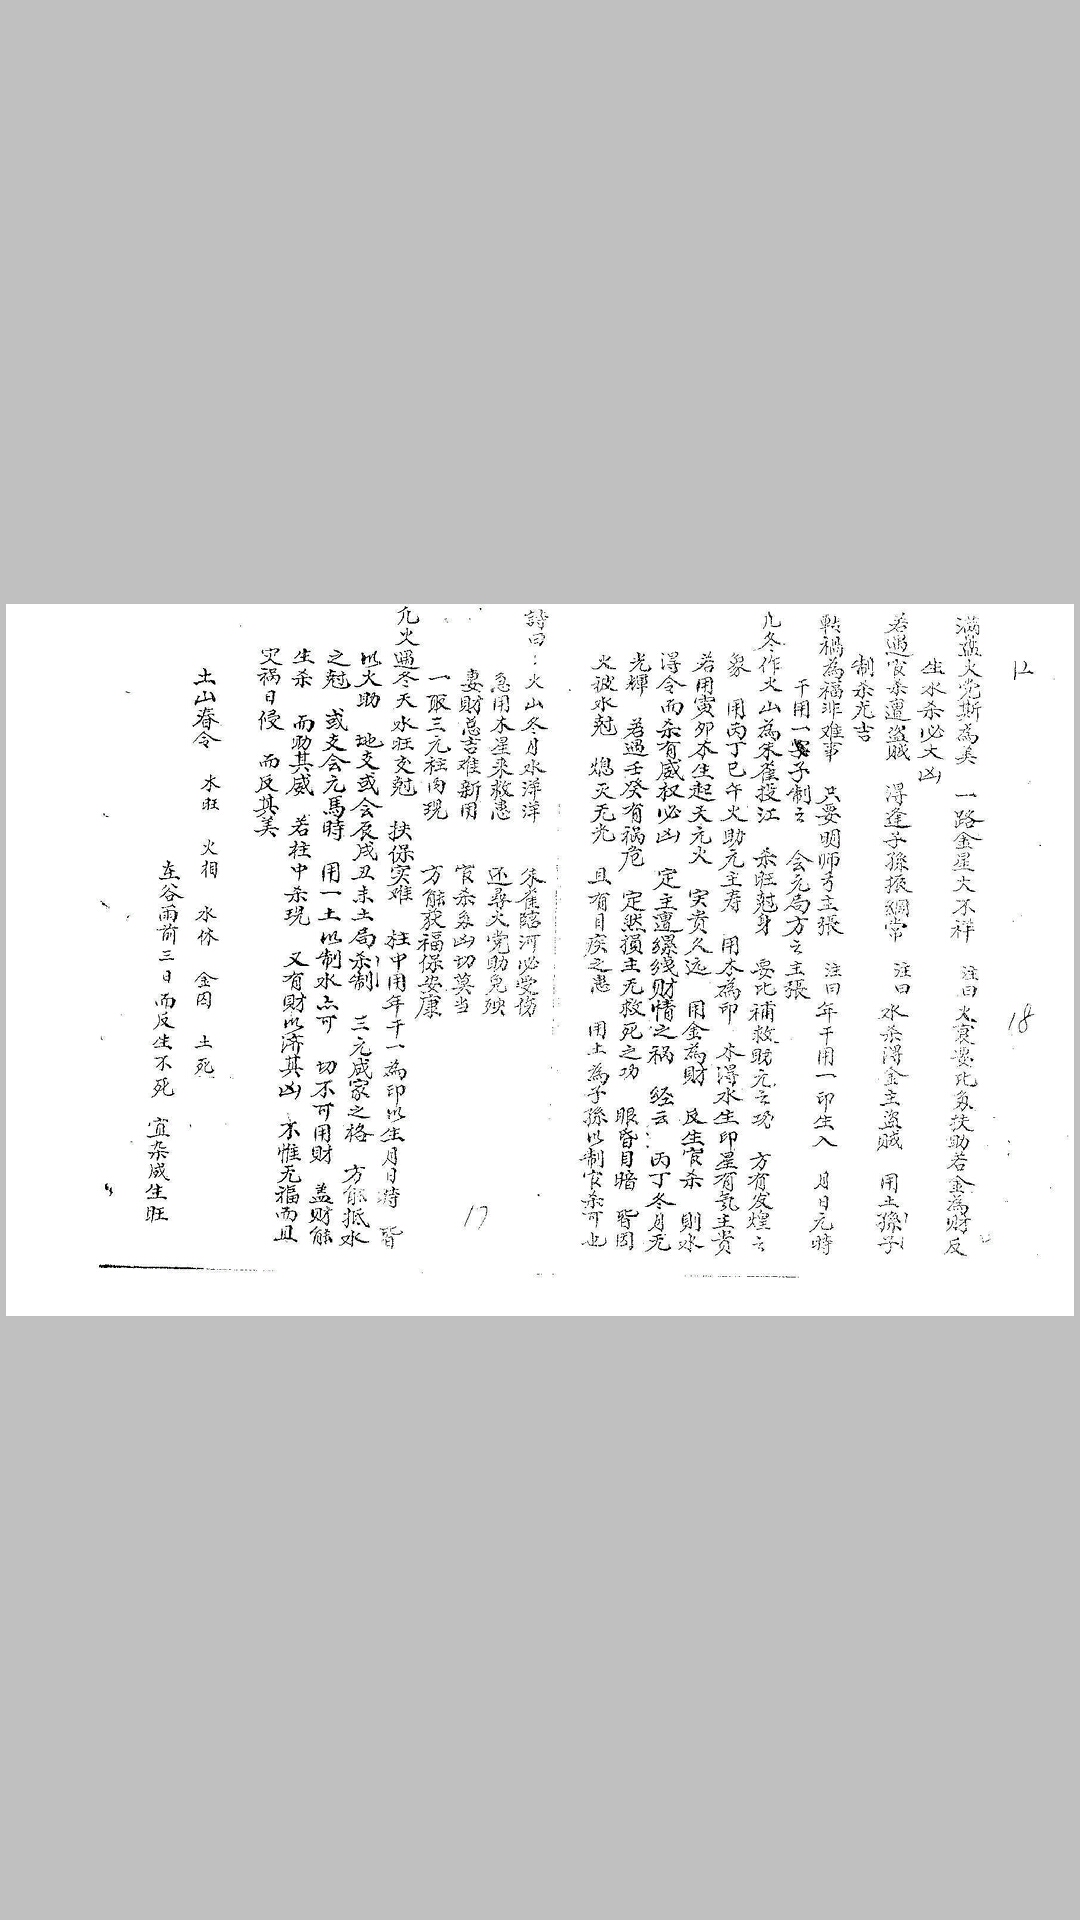 12
18
满盘火党斯為美 一路金星大不祥 注曰火衰要比多扶助若金為財反
生水杀必大凶
若遇官杀遭盗贼 得逢子孫振綱常 注曰水杀得金主盗贼 用土孫子
制杀尤吉
轉禍為福非难事 只要明师弓主張 注曰年干用一印生入 月日元時
干用一子制之 会元局方云主張
凡冬作火山為朱雀投江 杀旺尅身 要比補救助元之功 方有发煌之
象 用丙丁巳午火助元主寿 用木為印 木得水生印星有氣主貴
若用寅卯木生起天元火 实贵久远 用金為財 反生官杀 則水
得令而杀有威权必凶 定主遭缧线财情之祸 经云 丙丁冬月无
光輝 若遇壬癸有祸危 定然損主无救死之功 眼昏目暗 皆因
火被水尅 熄灭无光 且有目疾之患 用土為子孫以制官杀可也
詩曰：火山冬月水洋洋 朱雀臨河必受伤
急用木星来救患 还尋火党助免殃
妻財总吉难新用 官杀多凶切莫当
一取三元柱内現 方能获福保安康
凡火遇冬天水旺交尅 扶保实难 柱中用年干一為印以生月日時 皆
以火助 地支或会辰戌丑未土局杀制 三元成家之格 方能抵水
之尅 或支会元馬時 用一土以制水亦可 切不可用財 盖财能
生杀 而助其威 若柱中杀現 又有財以济其凶 不惟无福而且
灾祸日侵 而反其美
17
土山春令 木旺 火相 水休 金囚 土死
在谷雨前三日而反生不死 宜杂咸生旺